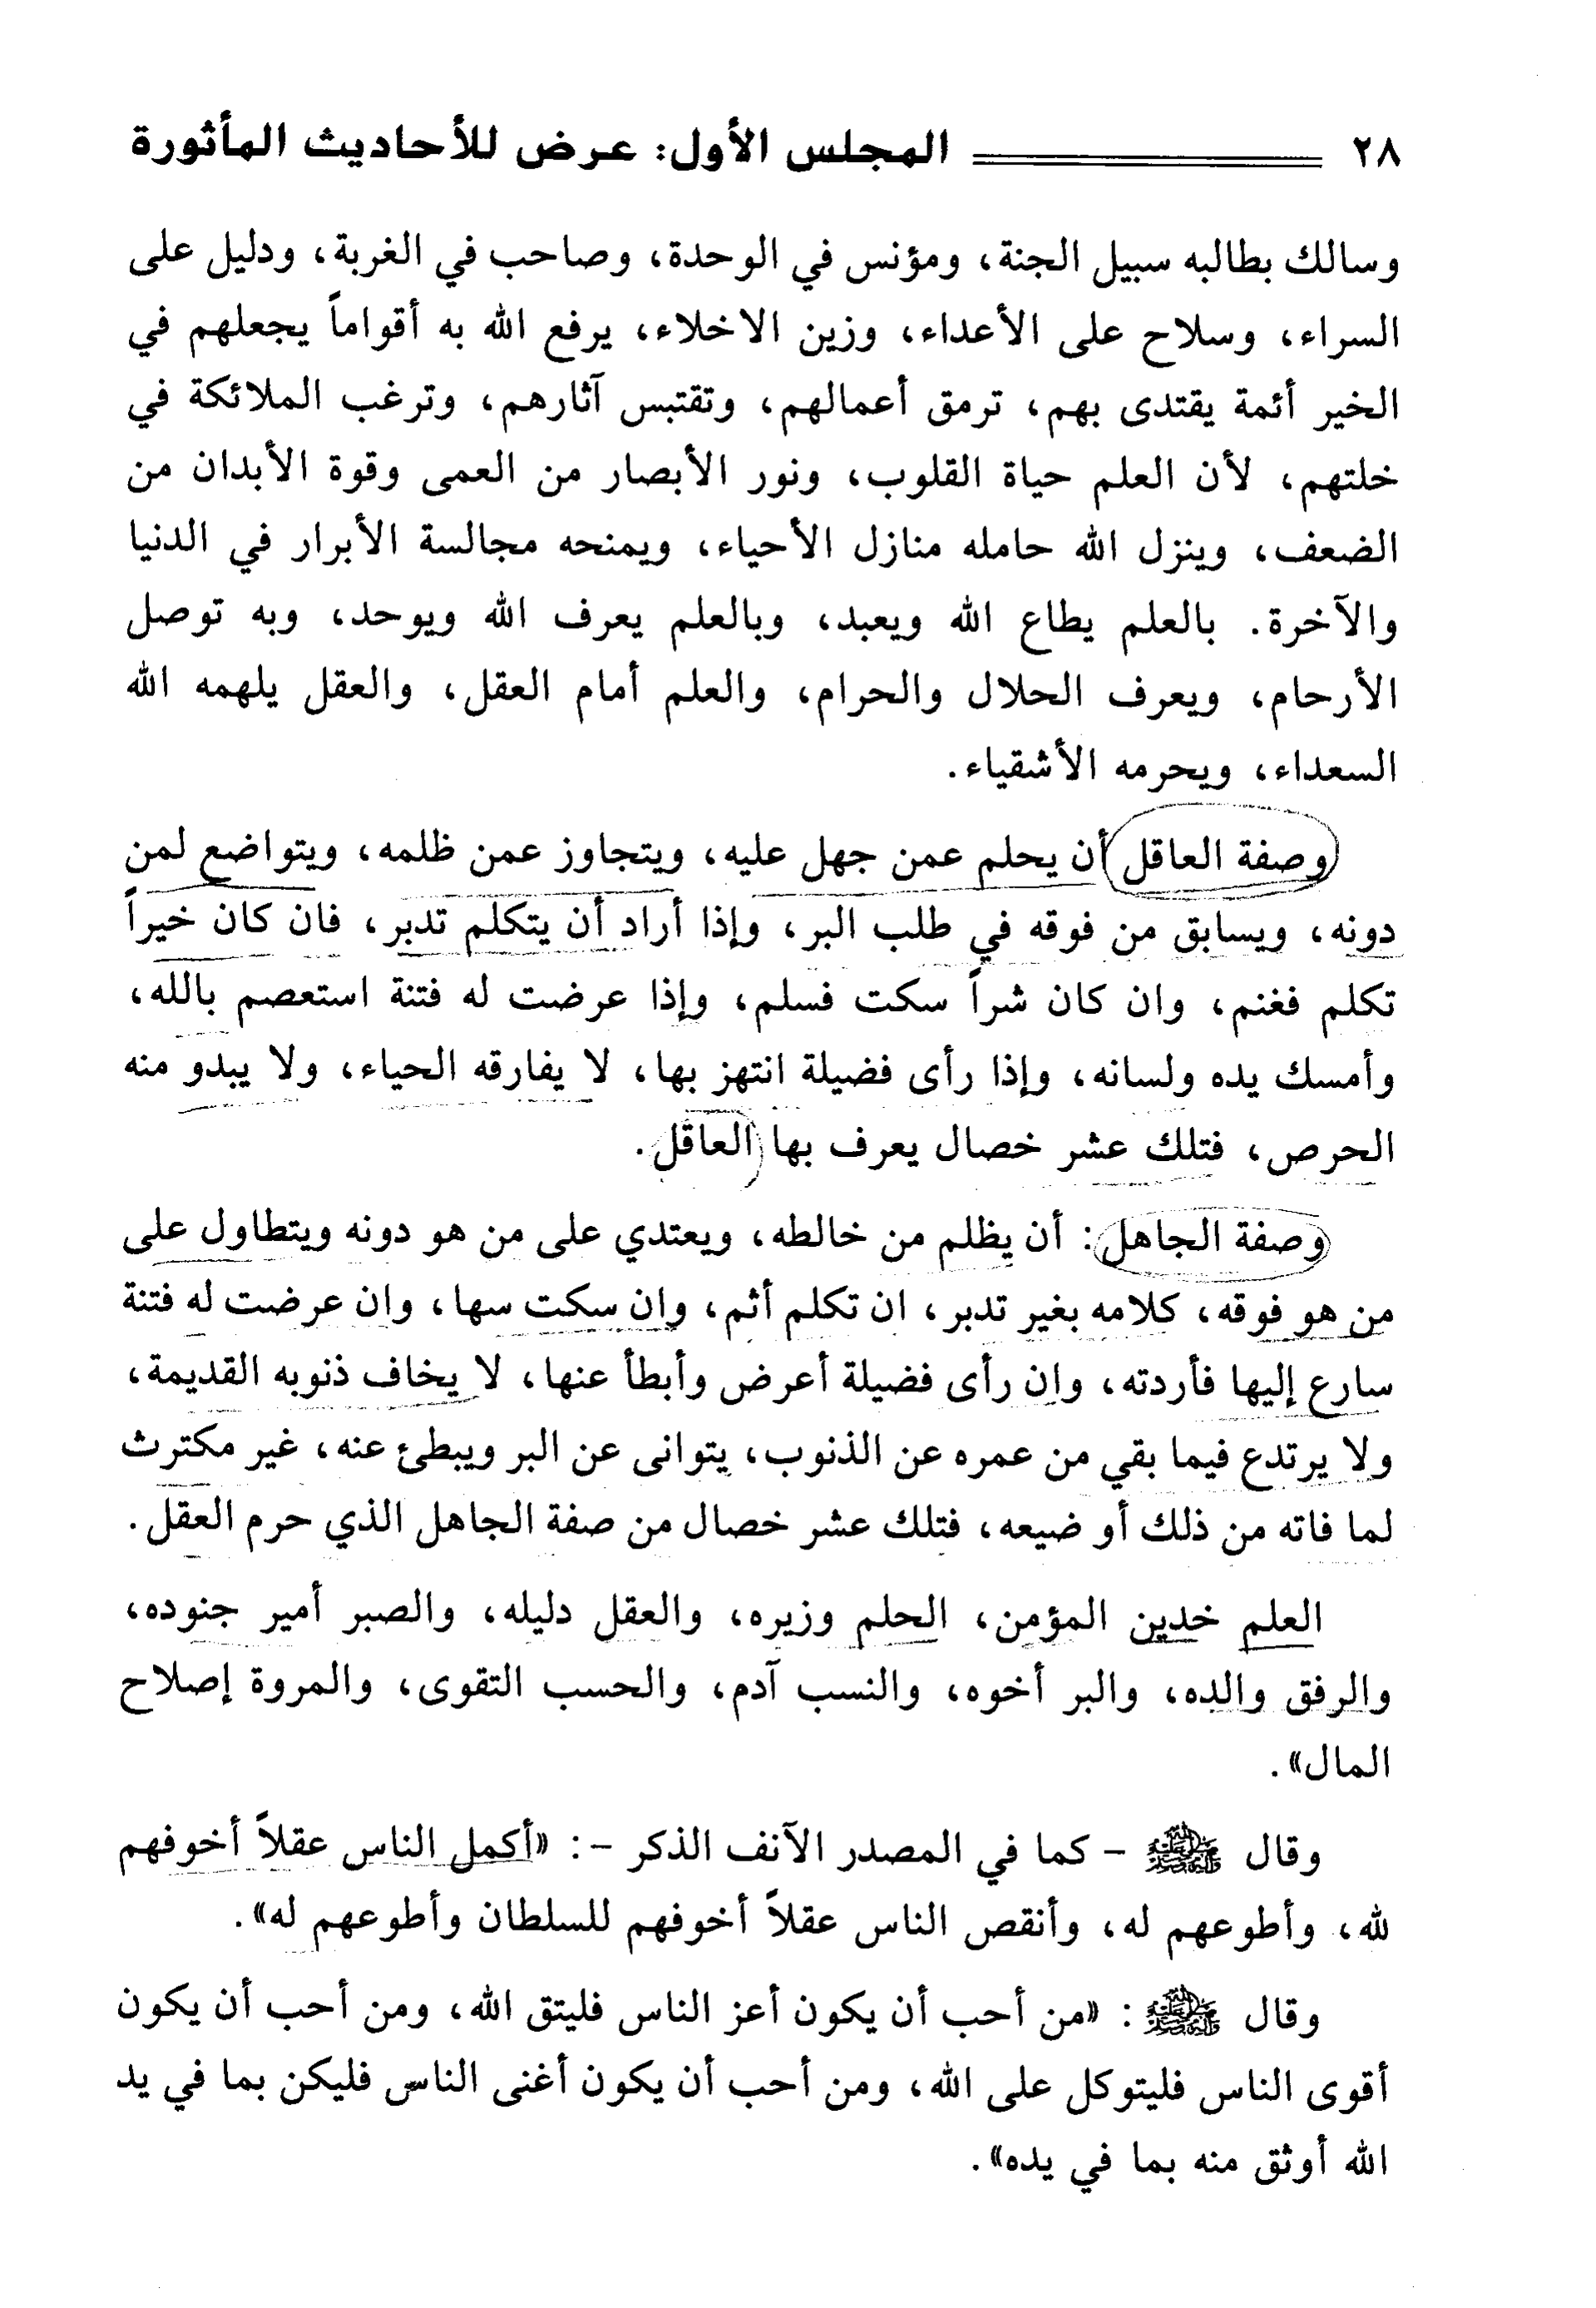 ٢٨ المجلس الأول: عرض للأحاديث المأثورة
وسالك بطالبه سبيل الجنة، ومؤنس في الوحدة، وصاحب في الغربة، ودليل على
السراء، وسلاح على الأعداء، وزين الاخلاء، يرفع الله به أقواماً يجعلهم في
الخير أئمة يقتدى بهم، ترمق أعمالهم، وتقتبس آثارهم، وترغب الملائكة في
خلتهم، لأن العلم حياة القلوب، ونور الأبصار من العمى وقوة الأبدان من
الضعف، وينزل الله حامله منازل الأحياء، ويمنحه مجالسة الأبرار في الدنيا
والآخرة. بالعلم يطاع الله ويعبد، وبالعلم يعرف الله ويوحد، وبه توصل
الأرحام، ويعرف الحلال والحرام، والعلم أمام العقل، والعقل يلهمه الله
السعداء، ويحرمه الأشقياء.
وصفة العاقل أن يحلم عمن جهل عليه، ويتجاوز عمن ظلمه، ويتواضع لمن
دونه، ويسابق من فوقه في طلب البر، وإذا أراد أن يتكلم تدبر، فان كان خيراً
تكلم فغنم، وان كان شراً سكت فسلم، وإذا عرضت له فتنة استعصم بالله،
وأمسك يده ولسانه، وإذا رأى فضيلة انتهز بها، لا يفارقه الحياء، ولا يبدو منه
الحرص، فتلك عشر خصال يعرف بها العاقل.
وصفة الجاهل: أن يظلم من خالطه، ويعتدي على من هو دونه ويتطاول على
من هو فوقه، كلامه بغير تدبر، ان تكلم أثم، وان سكت سها، وان عرضت له فتنة
سارع إليها فأردته، وان رأى فضيلة أعرض وأبطأ عنها، لا يخاف ذنوبه القديمة،
ولا يرتدع فيما بقي من عمره عن الذنوب، يتوانى عن البر ويبطئ عنه، غير مكترث
لما فاته من ذلك أو ضيعه، فتلك عشر خصال من صفة الجاهل الذي حرم العقل.
العلم خدين المؤمن، الحلم وزيره، والعقل دليله، والصبر أمير جنوده،
والرفق والده، والبر أخوه، والنسب آدم، والحسب التقوى، والمروة إصلاح
المال».
وقال ﷺ - كما في المصدر الآنف الذكر -: «أكمل الناس عقلاً أخوفهم
لله، وأطوعهم له، وأنقص الناس عقلاً أخوفهم للسلطان وأطوعهم له».
وقال ﷺ: «من أحب أن يكون أعز الناس فليتق الله، ومن أحب أن يكون
أقوى الناس فليتوكل على الله، ومن أحب أن يكون أغنى الناس فليكن بما في يد
الله أوثق منه بما في يده».